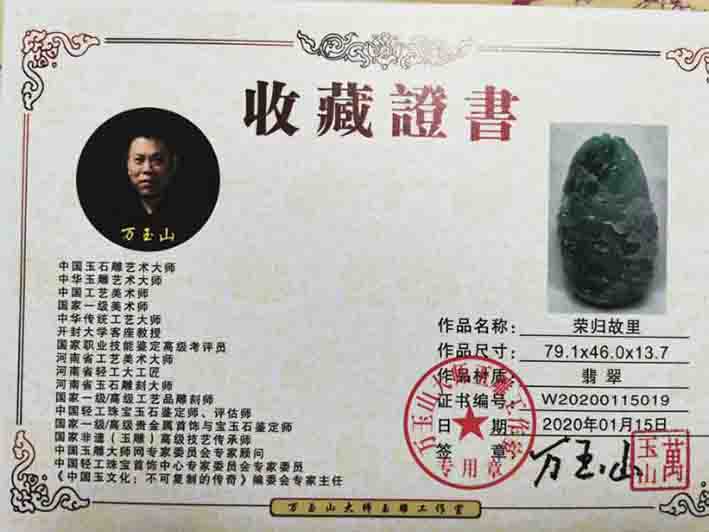 收藏證書
万玉山
中国玉石雕艺术大师
中华玉雕艺术大师
中国工艺美术师
国家一级美术师
中华传统工艺大师
开封大学客座教授
国家职业技能鉴定高级考评员
河南省工艺美术大师
河南省轻工大工匠
河南省玉石雕刻大师
国家一级/高级工艺品雕刻师
中国轻工珠宝玉石鉴定师、评估师
国家一级/高级贵金属首饰与宝玉石鉴定师
国家非遗（玉雕）高级技艺传承师
中国玉雕大师网专家委员会专家顾问
中国轻工珠宝首饰中心专家委员会专家委员
《中国玉文化：不可复制的传奇》编委会专家主任
作品名称：荣归故里
作品尺寸：79.1x46.0x13.7
作品材质：翡翠
证书编号：W20200115019
日期：2020年01月15日
签章：万玉山
万玉山大师玉雕工作室
专用章
萬玉山
万玉山大师玉雕工作室